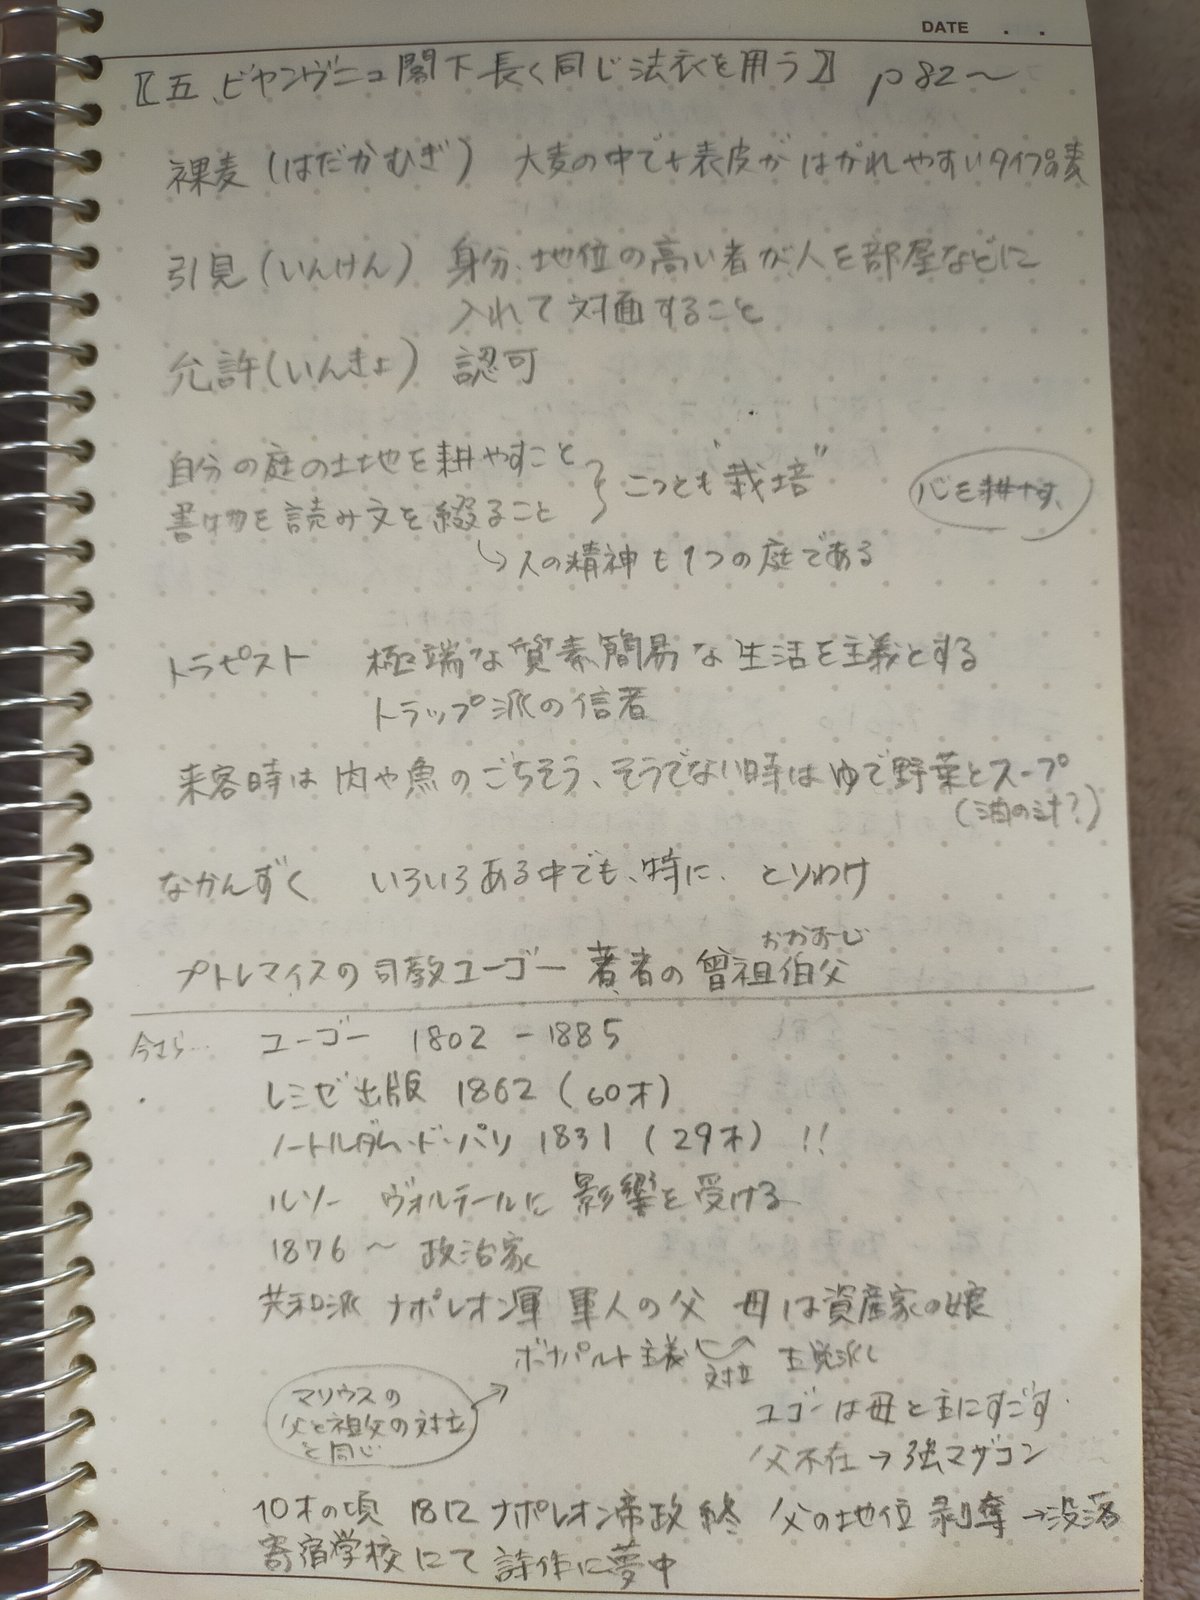 DATE . .
〖五、ビヤンヴニュ閣下長く同じ法衣を用う〗 p82〜
裸麦(はだかむぎ) 大麦の中でも表皮がはがれやすいタイプの麦
引見(いんけん) 身分、地位の高い者が人を部屋などに
入れて対面すること
允許(いんきょ) 認可
自分の庭の土地を耕やすこと
書物を読み文を綴ること
二つとも“栽培”
心を耕やす、
↳人の精神も1つの庭である
トラピスト 極端な質素簡易な生活を主義とする
トラップ派の信者
来客時は肉や魚のごちそう、そうでない時はゆで野菜とスープ
(油の汁?)
なかんずく いろいろある中でも、特に、とりわけ
プトレマイスの司教ユーゴー 著者の曾祖伯父
おおおじ
今さら… ユーゴー 1802 - 1885
レミゼ出版 1862 (60才)
ノートルダム・ド・パリ 1831 (29才) !!
ルソー ヴォルテールに影響を受ける
1876〜 政治家
共和派 ナポレオン軍 軍人の父 母は資産家の娘
ボナパルト主義 対立 王党派
マリウスの
父と祖父の対立
と同じ
ユゴーは母と主にすごす.
父不在→強マザコン
10才の頃 1812 ナポレオン帝政終 父の地位剥奪→没落
寄宿学校にて詩作に夢中